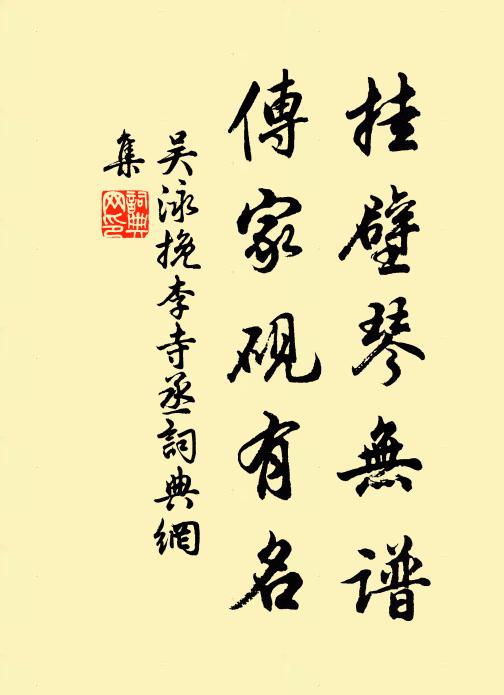 挂壁琴無譜
傳家硯有名
吴泳挽李寺丞詞典網
集
詞典
网印